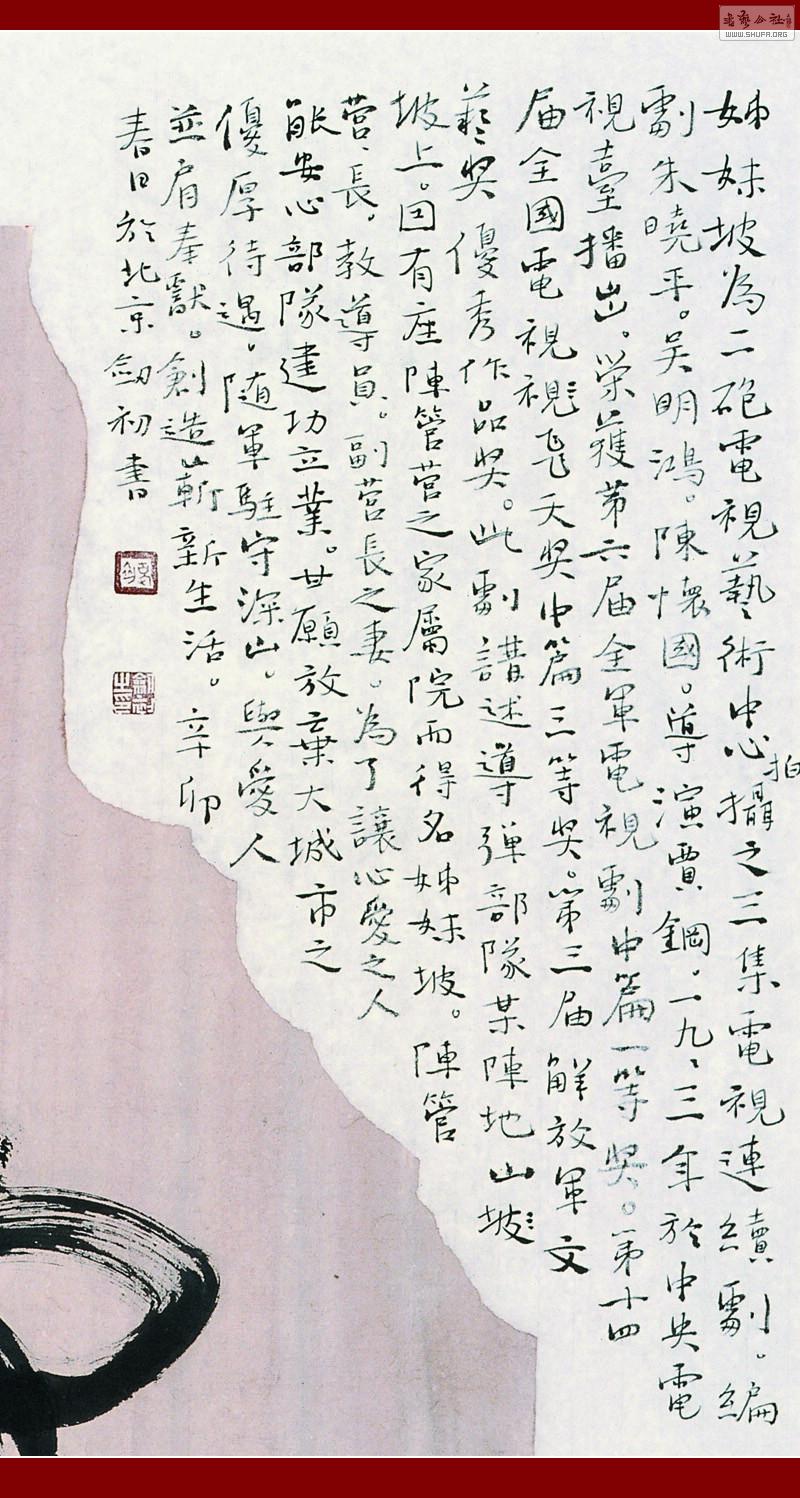 姊妹坡為二砲電視藝術中心攝之三集電視連續劇。編
拍
劇朱曉平。吴明鴻。陳懷國。導演賈鋼。一九、三年於中央電
視臺播出。榮獲第六届全軍電視劇中篇一等奖。第十四
届全國電視飛天奖中篇三等奖。第三届解放軍文
藝奖優秀作品奖。此劇講述導弹部隊某陣地山坡
坡上。因有座陣管营之家屬院而得名姊妹坡。陣管
营長，教導員。副营長之妻。為了讓心愛之人
能安心部隊建功立業。甘願放棄大城市之
優厚待遇，随軍駐守深山。與愛人
並肩奉獻。創造嶄新生活。辛卯
春日於北京劍初書
WWW.SHUFA.ORG